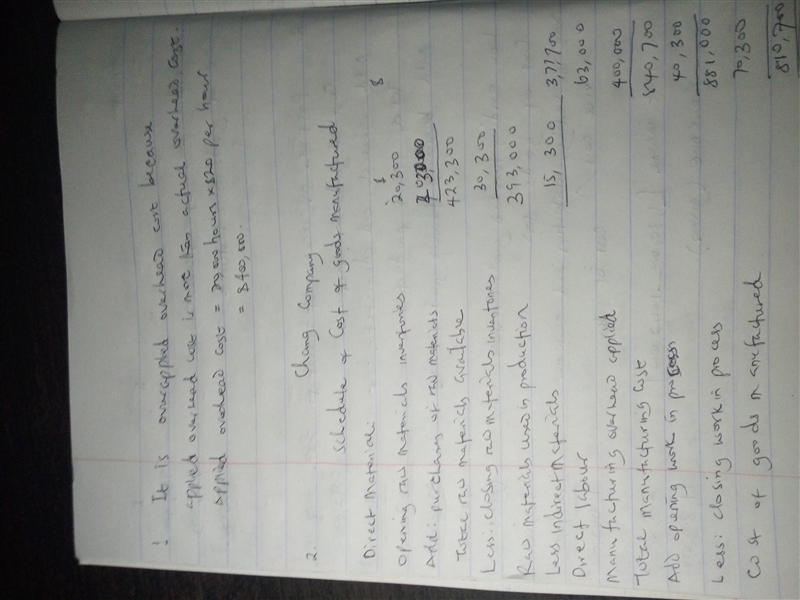 ∴ It is overapplied overhead cost because
applied overhead cost is not less actual overhead cost.
applied overhead cost = 20,000 hours × $20 per hour
= $400,000.
2. Chang Company
Schedule of Cost of goods manufactured
Direct Material: $ $
Opening raw materials inventories 20,300
Add: purchases of raw materials
Total raw materials available 423,300
Less: closing raw materials inventories 30,300
Raw materials used in production 393,000
Less indirect materials 15,300 377,700
Direct labour 63,000
Manufacturing overhead applied 400,000
Total manufacturing cost 840,700
Add opening work in process 40,300
881,000
Less: closing work in process 70,300
Cost of goods manufactured 810,700